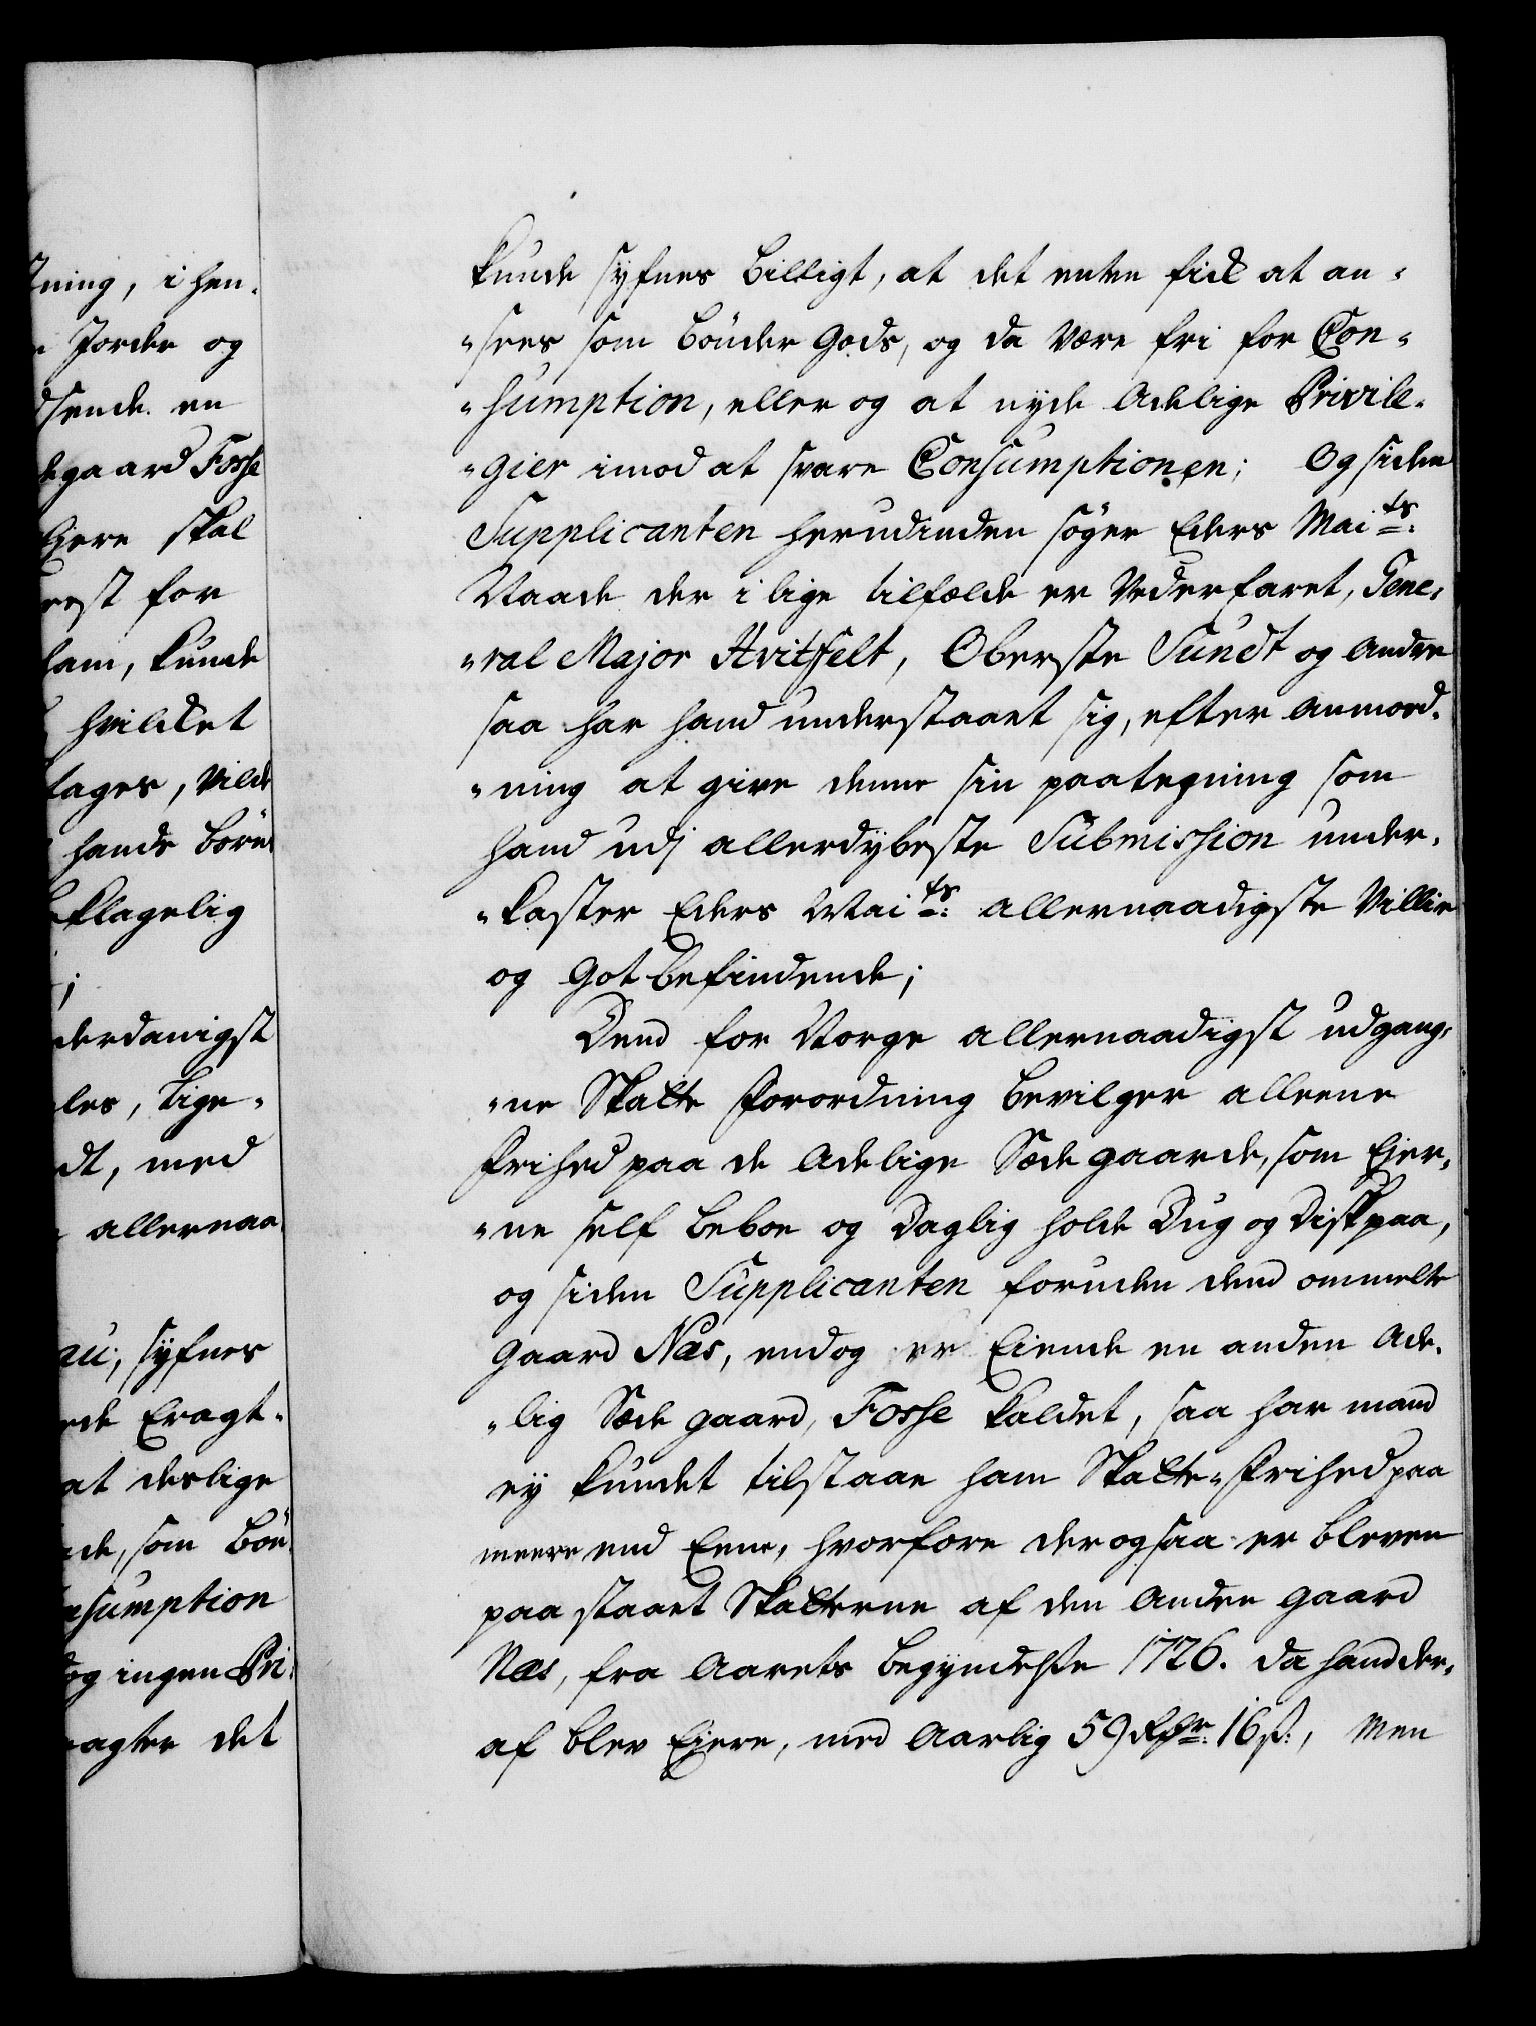 tning, i hen¬
Jorder og
sende en
degaard Fosse
Ejere skal
rest for
ham, kunde
hvilcket
tages, vilde
hands børn
beklagelig
derdanigst
les, lige¬
dt, med
allernaa¬
au; syfnes
ede Eragt¬
at deslige
de, som bøn¬
nsumption
dog ingen Pri¬
agter det
kunde syfnes billigt, at det enten fick at an¬
"sees som bønder Gods, og da være fri for Con¬
"sumption, eller og at nyde Adelige Privile¬
"gier imod at svare Consumptionen; Og siden
Supplicanten herudinden søger Eders Maits:
Naade der i lige tilfælde er Vederfaret, Gene¬
"ral Major Hvitfelt, Oberste Sundt og Andre
saa har hand understaaet sig, efter Anmod¬
"ning at give denne sin paategning som
hand udj allerdybeste Submission under¬
"kaster Eders Maits: allernaadigste Villie
og Got befindende;
Dend for Norge allernaadigst udgang¬
"ne Skatte Forordning bevilger alleene
Frihed paa de Adelige Sæde gaarde, som Ejer¬
"ne self beboe og Daglig holde Dug og Disk paa,
og siden Supplicanten foruden dend ommelte
Gaard Næs, endog er Eiende en anden Ade¬
"lig Sæde gaard, Fosse kaldet, saa har mand
ey kundet tilstaae ham Skatte-Frihed paa
meere end Eene, hvorfore der ogsaa er bleven
paa staaet Skatterne af den Anden Gaard
Næs, fra Aarets begyndelse 1726. da hand der¬
af blev Ejere, med Aarlig 59 Rdr: 16 s:, Men